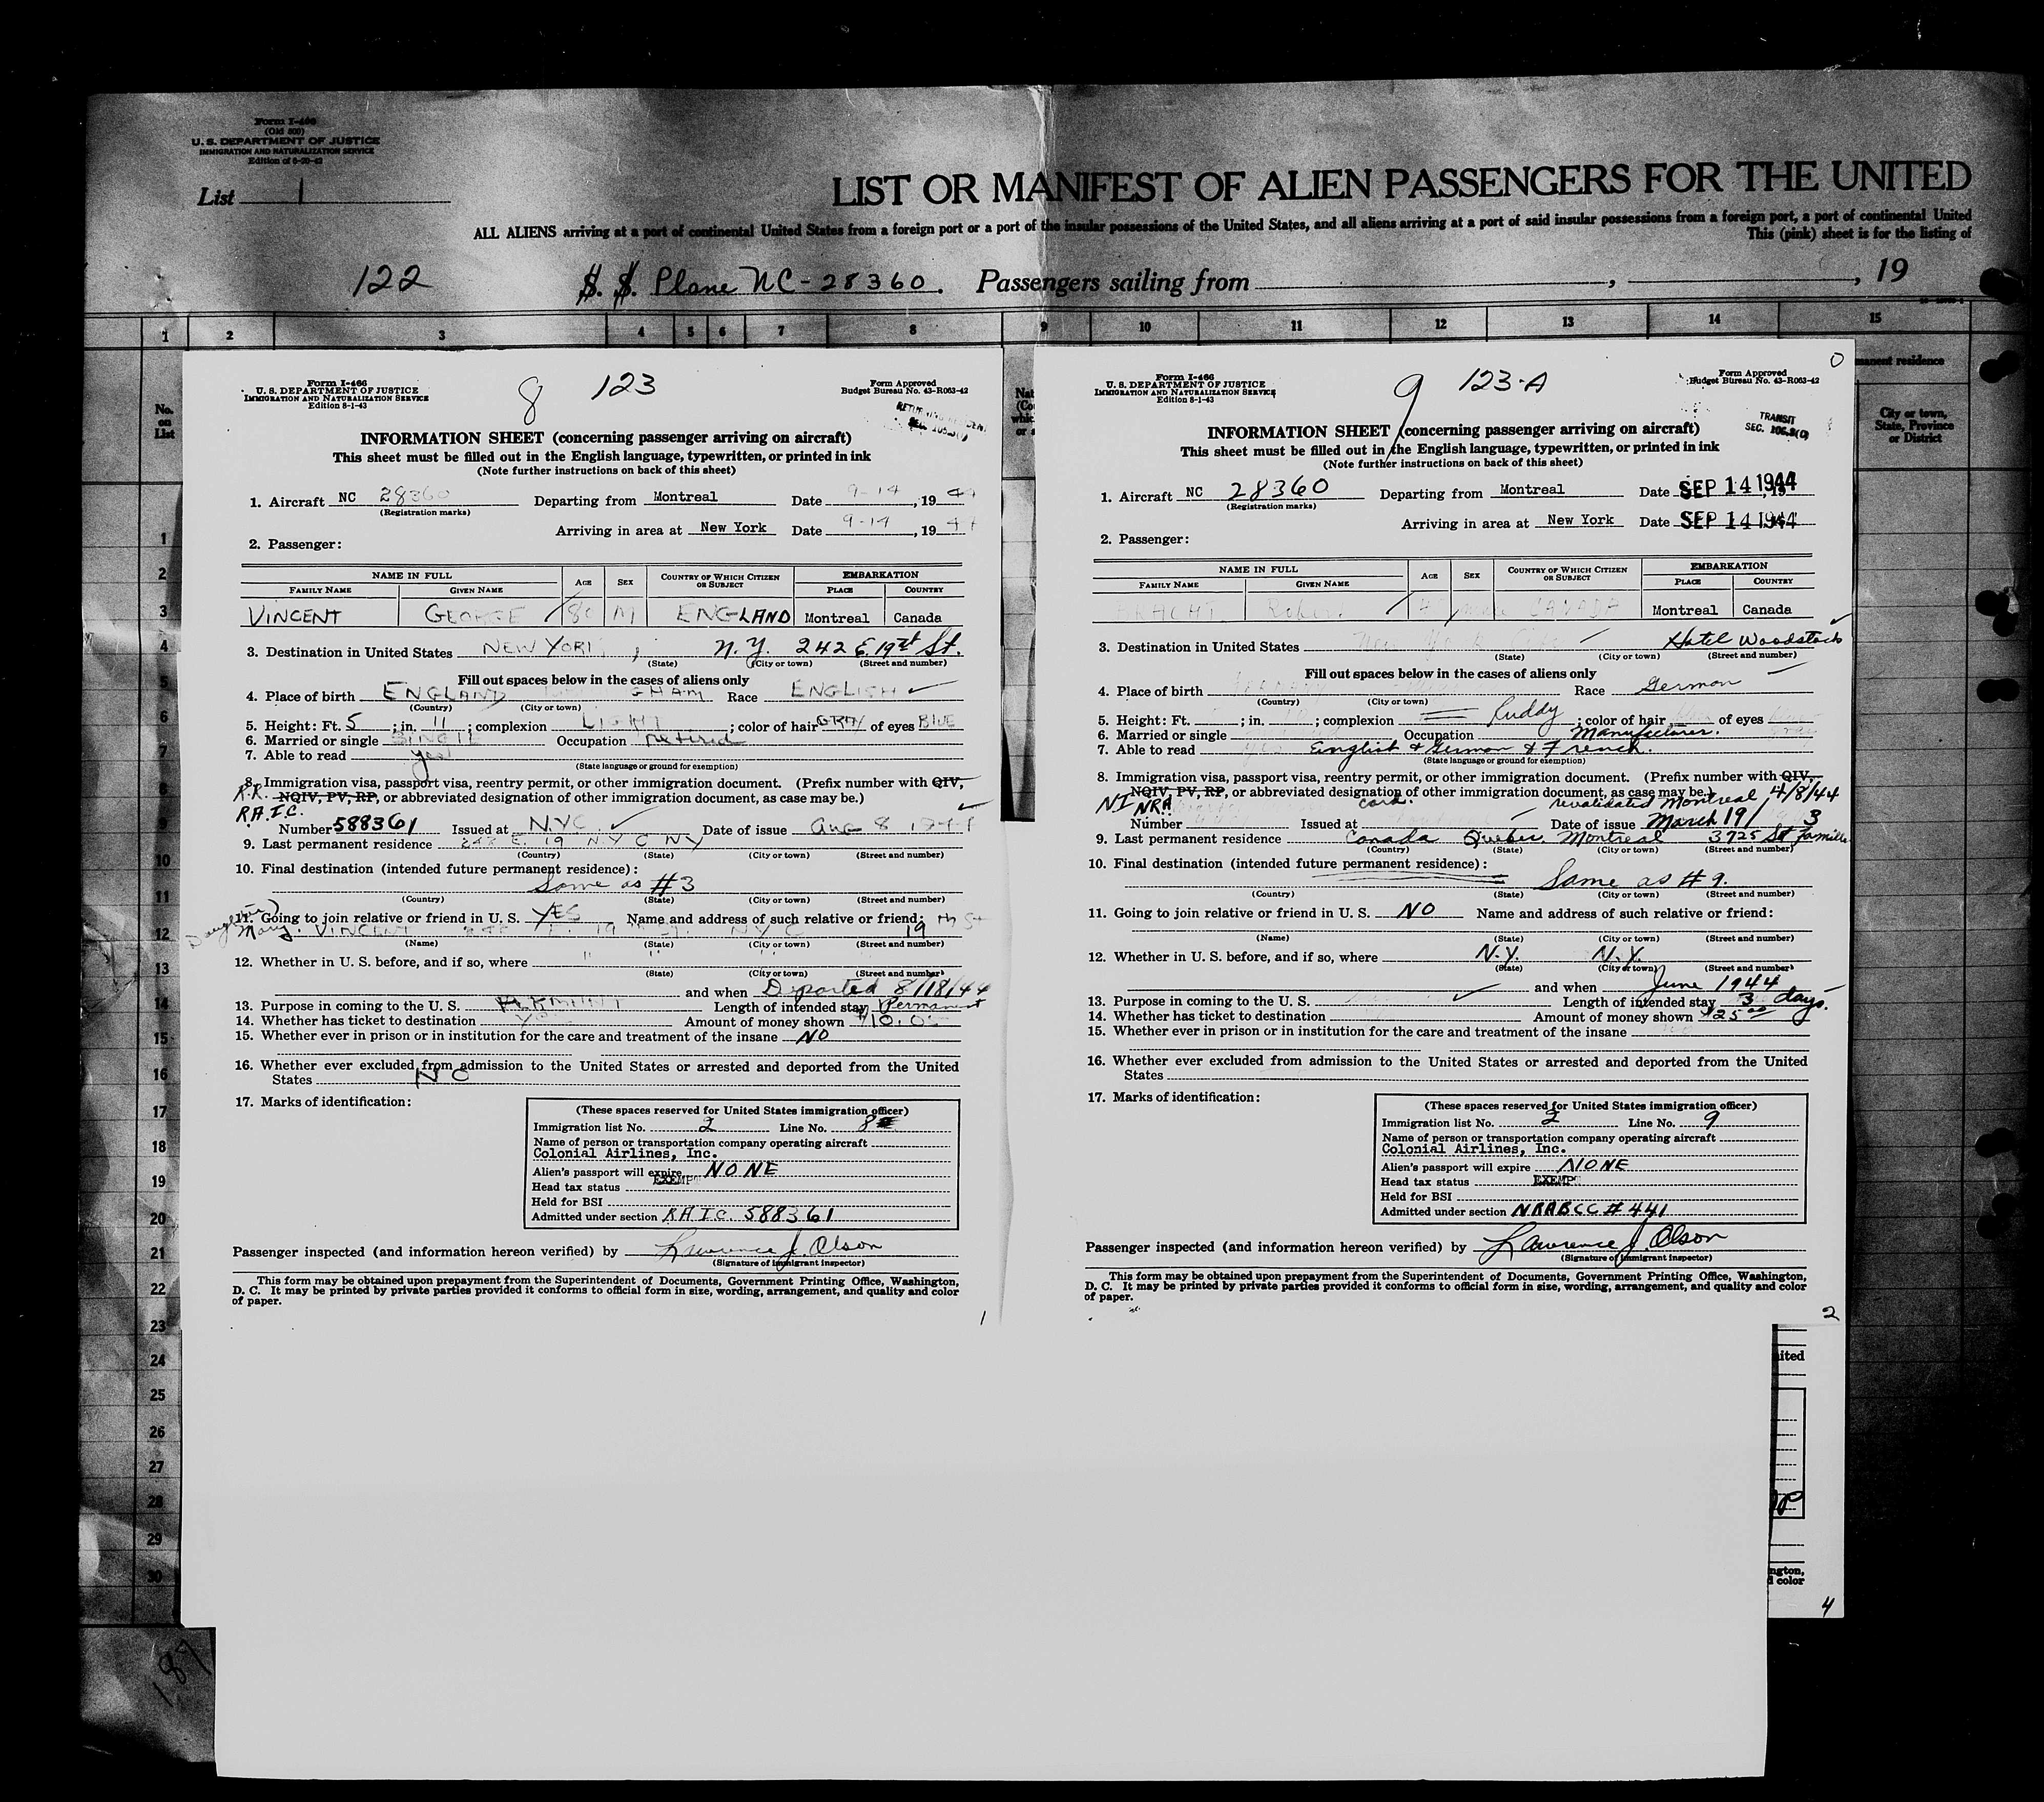 Form I-466
(Old 500)
U. S. DEPARTMENT OF JUSTICE
IMMIGRATION AND NATURALIZATION SERVICE
Edition of 6-20-42
List 1
LIST OR MANIFEST OF ALIEN PASSENGERS FOR THE UNITED
ALL ALIENS arriving at a port of continental United States from a foreign port or a port of the insular possessions of the United States, and all aliens arriving at a port of said insular possessions from a foreign port, a port of continental United
This (pink) sheet is for the listing of
122 S. S. Plane NC-28360. Passengers sailing from , , 19
1 2 3 4 5 6 7 8 9 10 11 12 13 14 15
No. on List
manent residence
City or town, State, Province or District
Form I-466
U. S. DEPARTMENT OF JUSTICE
IMMIGRATION AND NATURALIZATION SERVICE
Edition 8-1-43
8 123
Form Approved
Budget Bureau No. 43-R063-42
INFORMATION SHEET (concerning passenger arriving on aircraft)
This sheet must be filled out in the English language, typewritten, or printed in ink
(Note further instructions on back of this sheet)
1. Aircraft NC 28360 Departing from Montreal Date 9-14, 1944
(Registration marks)
Arriving in area at New York Date 9-14, 1944
2. Passenger:
NAME IN FULL AGE SEX COUNTRY OF WHICH CITIZEN OR SUBJECT EMBARKATION
FAMILY NAME GIVEN NAME PLACE COUNTRY
VINCENT GEORGE 80 M ENGLAND Montreal Canada
3. Destination in United States NEW YORK, N.Y. 242 E 19st St.
(State) (City or town) (Street and number)
Fill out spaces below in the cases of aliens only
4. Place of birth ENGLAND GHAM Race ENGLISH
(Country) (City or town)
5. Height: Ft. 5; in. 11; complexion LIGHT; color of hair GRAY of eyes BLUE
6. Married or single SINGLE Occupation retired
7. Able to read yes
(State language or ground for exemption)
8. Immigration visa, passport visa, reentry permit, or other immigration document. (Prefix number with QIV,
R.R. NQIV, PV, RP, or abbreviated designation of other immigration document, as case may be.)
R.A.I.C.
Number 588361 Issued at N.Y.C. Date of issue Aug 8 1944
9. Last permanent residence 242 E. 19 N Y C NY
(Country) (State) (City or town) (Street and number)
10. Final destination (intended future permanent residence):
Same as #3
(Country) (State) (City or town) (Street and number)
Daughter)
11. Going to join relative or friend in U. S. YES Name and address of such relative or friend:
Mary. VINCENT 242 E. 19th St. NYC 19
(Name) (State) (City or town) (Street and number)
12. Whether in U. S. before, and if so, where " " "
(State) (City or town) (Street and number)
and when Departed 8/18/44
13. Purpose in coming to the U. S. Length of intended stay Permanent
14. Whether has ticket to destination YES Amount of money shown $10.00
15. Whether ever in prison or in institution for the care and treatment of the insane NO
16. Whether ever excluded from admission to the United States or arrested and deported from the United
States NO
17. Marks of identification:
(These spaces reserved for United States immigration officer)
Immigration list No. 2 Line No. 8
Name of person or transportation company operating aircraft
Colonial Airlines, Inc.
Alien's passport will expire NONE
Head tax status EXEMPT
Held for BSI
Admitted under section R.A.I.C. 588361
Passenger inspected (and information hereon verified) by Lawrence J. Olson
(Signature of immigrant inspector)
This form may be obtained upon prepayment from the Superintendent of Documents, Government Printing Office, Washington,
D. C. It may be printed by private parties provided it conforms to official form in size, wording, arrangement, and quality and color
of paper.
1
Form I-466
U. S. DEPARTMENT OF JUSTICE
IMMIGRATION AND NATURALIZATION SERVICE
Edition 8-1-43
9 123-A
0
Form Approved
Budget Bureau No. 43-R063-42
TRANSIT
SEC. 105.3(c)
INFORMATION SHEET (concerning passenger arriving on aircraft)
This sheet must be filled out in the English language, typewritten, or printed in ink
(Note further instructions on back of this sheet)
1. Aircraft NC 28360 Departing from Montreal Date SEP 14 1944
(Registration marks)
Arriving in area at New York Date SEP 14 1944
2. Passenger:
NAME IN FULL AGE SEX COUNTRY OF WHICH CITIZEN OR SUBJECT EMBARKATION
FAMILY NAME GIVEN NAME PLACE COUNTRY
Robert CANADA Montreal Canada
3. Destination in United States New York City Hotel Woodstock
(State) (City or town) (Street and number)
Fill out spaces below in the cases of aliens only
4. Place of birth Race German
(Country) (City or town)
5. Height: Ft. ; in. ; complexion Ruddy; color of hair of eyes
6. Married or single Occupation Manufacturer.
7. Able to read yes English & German & French.
(State language or ground for exemption)
8. Immigration visa, passport visa, reentry permit, or other immigration document. (Prefix number with QIV,
NQIV, PV, RP, or abbreviated designation of other immigration document, as case may be.)
NI NRA card. revalidated Montreal 4/3/44
Number Issued at Date of issue March 19/ 3
9. Last permanent residence Canada Quebec Montreal 3725 St Famille
(Country) (State) (City or town) (Street and number)
10. Final destination (intended future permanent residence):
Same as #9.
(Country) (State) (City or town) (Street and number)
11. Going to join relative or friend in U. S. NO Name and address of such relative or friend:
(Name) (State) (City or town) (Street and number)
12. Whether in U. S. before, and if so, where N.Y. N.Y.
(State) (City or town) (Street and number)
and when June 1944
13. Purpose in coming to the U. S. Length of intended stay 3 days.
14. Whether has ticket to destination Amount of money shown $25.00
15. Whether ever in prison or in institution for the care and treatment of the insane
16. Whether ever excluded from admission to the United States or arrested and deported from the United
States
17. Marks of identification:
(These spaces reserved for United States immigration officer)
Immigration list No. 2 Line No. 9
Name of person or transportation company operating aircraft
Colonial Airlines, Inc.
Alien's passport will expire NONE
Head tax status EXEMPT
Held for BSI
Admitted under section NRABCC #441
Passenger inspected (and information hereon verified) by Lawrence J. Olson
(Signature of immigrant inspector)
This form may be obtained upon prepayment from the Superintendent of Documents, Government Printing Office, Washington,
D. C. It may be printed by private parties provided it conforms to official form in size, wording, arrangement, and quality and color
of paper.
2
1
2
3
4
5
6
7
8
9
10
11
12
13
14
15
16
17
18
19
20
21
22
23
24
25
26
27
28
29
30
ited
ngton,
d color
4
187